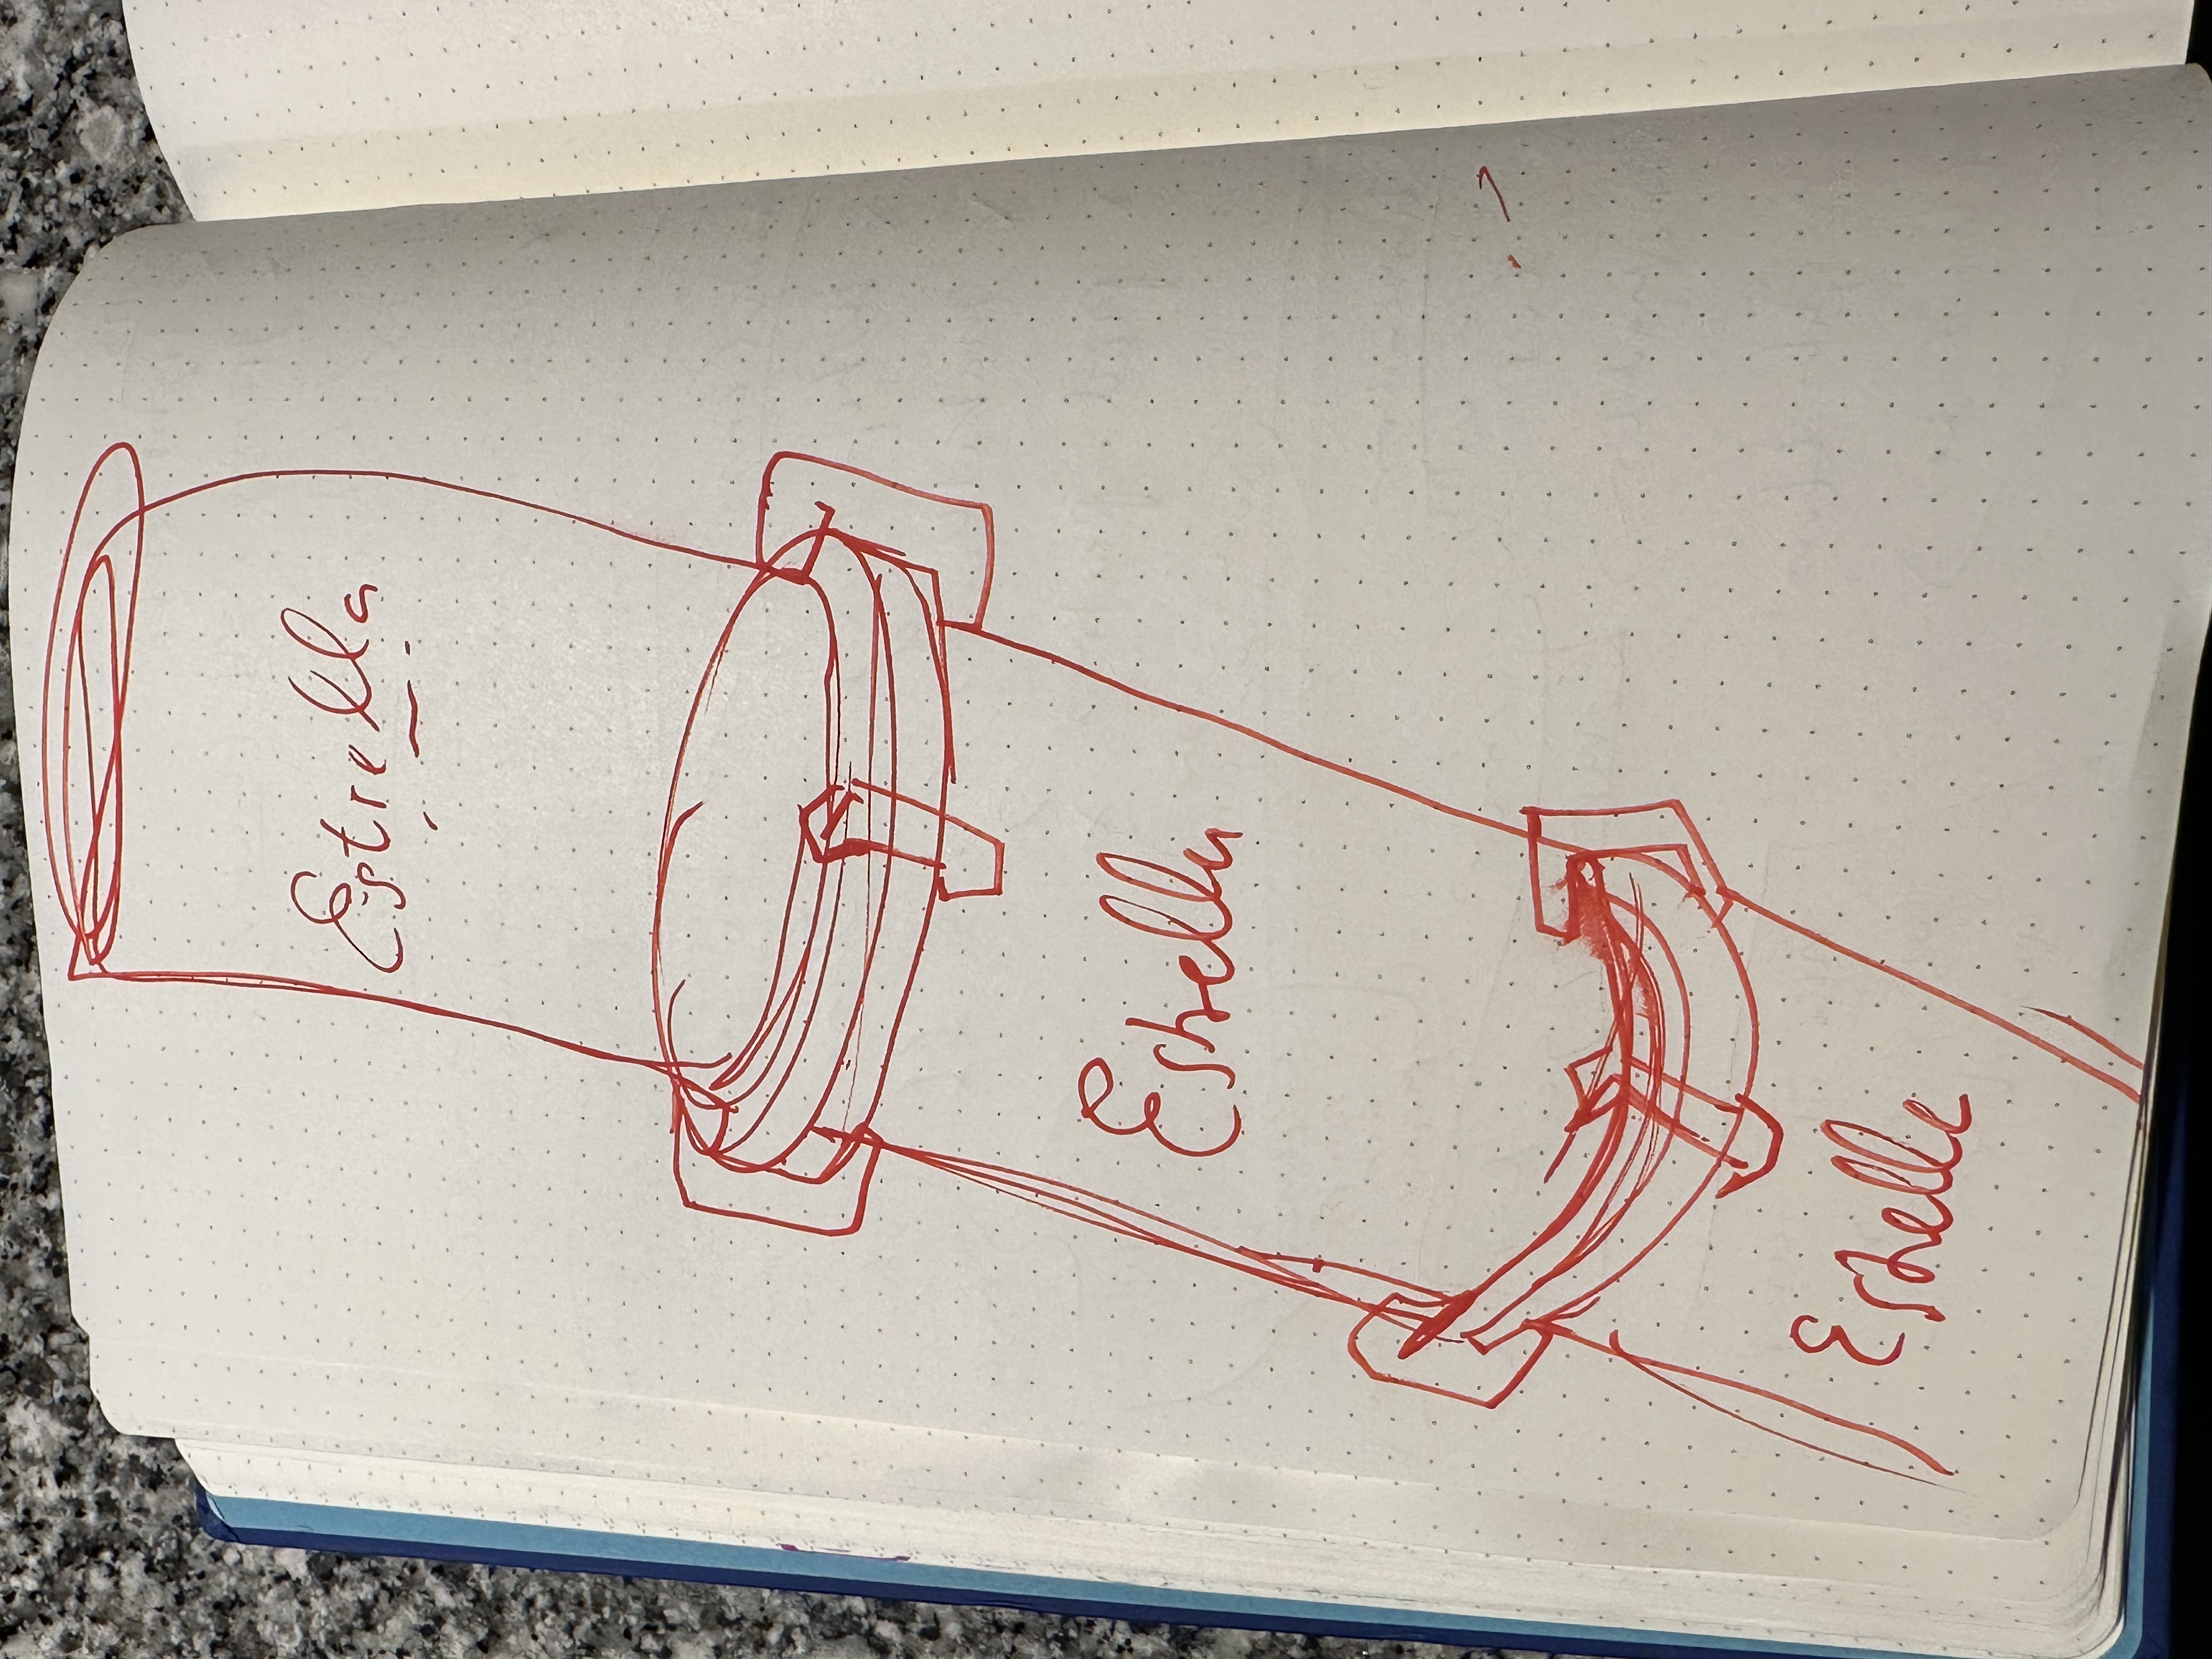 Estrella
Estrella
Estrella